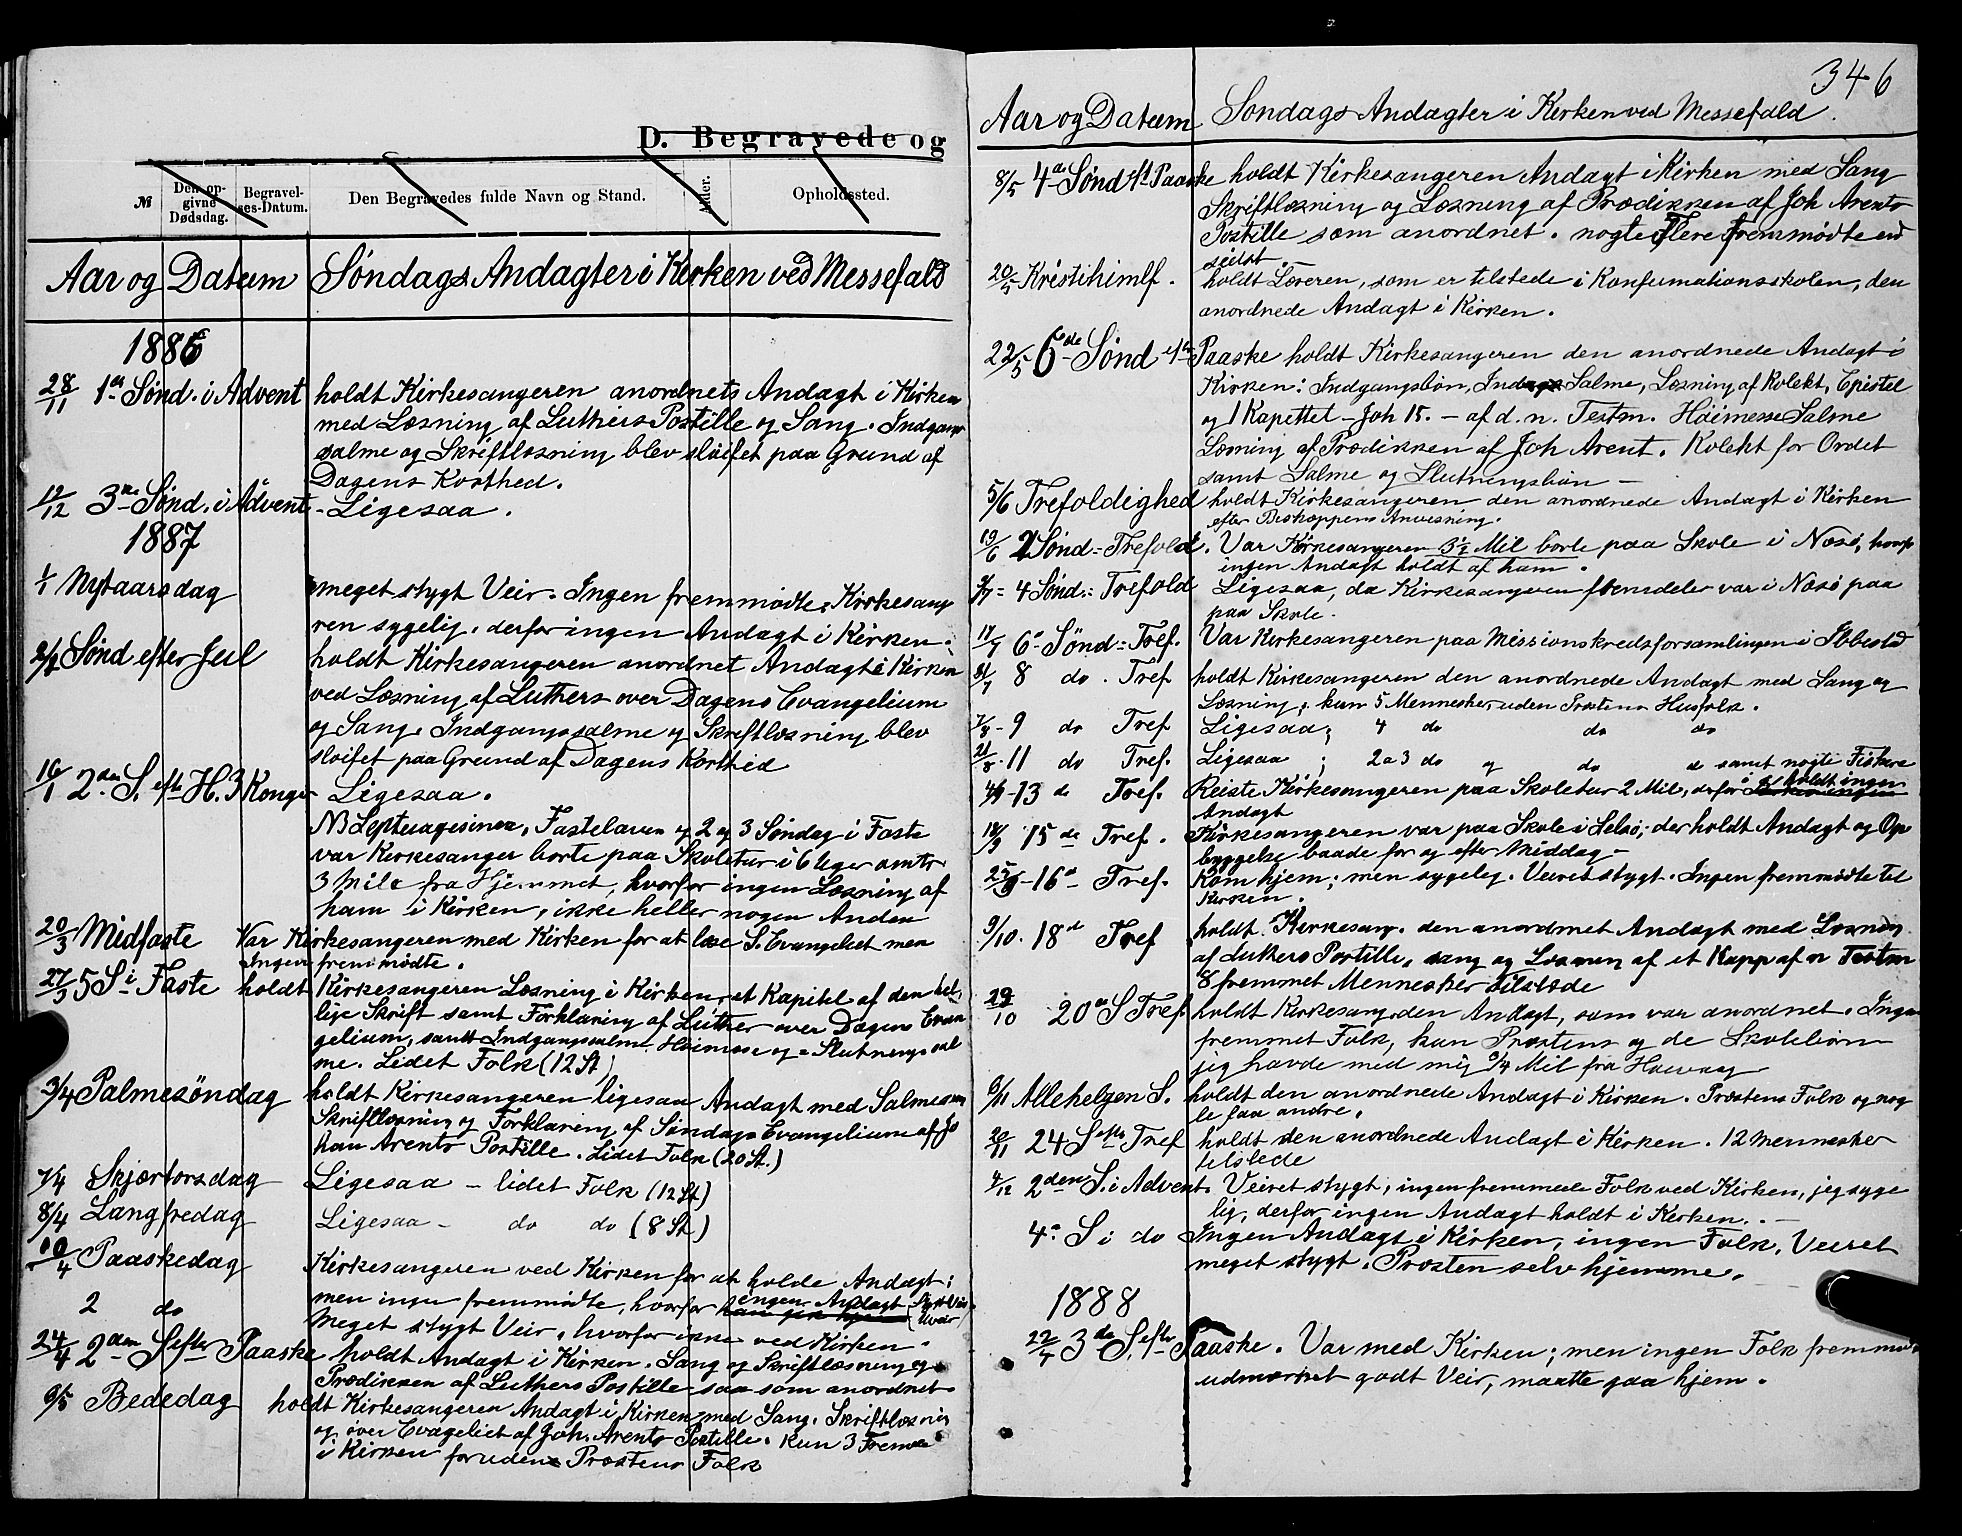 D. Begravede og
№ Den opgivne Dødsdag. Begravelses-Datum. Den Begravedes fulde Navn og Stand. Alder. Opholdssted.
Aar og Datum Søndags Andagter i Kirken ved Messefald
1886
28/11 1ste Sønd. i Advent holdt Kirkesangeren anordnets Andagt i Kirken
med Læsning af Luthers Postille og Sang. Indgangs
salme og Skriftlæsning blev sløifet paa Grund af
Dagens Korthed.
12/12 3die Sønd. i Advent - Ligesaa.
1887
1/1 Nytaarsdag meget stygt Veir. Ingen fremmødte, Kirkesang
ren sygelig. derfor ingen Andagt i Kirken.
2/1 Sønd efter Jul holdt Kirkesangeren anordnet Andagt i Kirken
ved Læsning af Luthers over Dagens Evangelium
og Sang. Indgangssalme og Skriftlæsning blev
sløifet paa Grund af Dagens Korthed
16/1 2den S. eft H. 3 Konger Ligesaa.
NB Septuagesima, Fastelaven og 2 og 3 Søndag i Faste
var Kirkesanger borte paa Skoletur i 6 Uger omtr.
3 Mile fra Hjemmet, hvorfor ingen Læsning af
ham i Kirken, ikke heller nogen Anden
20/3 Midfaste Var Kirkesangeren med Kirken for at læse S. Evangeliet men
Ingen fremmødte.
27/3 5 S i Faste holdt Kirkesangeren Læsning i Kirken, et Kapitel af den hel
lige Skrift samt Forklaring af Luther over Dagens Evan
gelium, samt Indgangssalme, Høimesse og Slutningssal
me. Lidet Folk (12 St)
3/4 Palmesøndag holdt Kirkesangeren ligesaa Andagt med Salmesang
Skriftlæsning og Forklaring af Søndags Evangelium af Jo
han Arents Postille. Lidet Folk (20 St.)
7/4 Skjærtorsdag Ligesaa - lidet Folk (12 St)
8/4 Langfredag Ligesaa - do do (8 St)
10/4 Paaskedag Kirkesangeren ved Kirken for at holde Andagt;
men ingen fremmødte, hvorfor ingen Andagt
2 do Meget stygt Veir, hvorfor ikke ved Kirken.
24/4 2den S efter Paaske holdt Andagt i Kirken. Sang og Skriftlæsning og
Prædikken af Luthers Postille saa som anordnet
6/5 Bededag holdt Kirkesangeren Andagt i Kirken med Sang. Skriftlæsning
og over Evageliet af Joh. Arents Postille. kun 3 Fremde
i Kirken foruden Prostens Folk
346
Aar og Datum Søndags Andagter i Kirken ved Messefald.
8/5 4de Sønd eft Paaske holdt Kirkesangeren Andagt i Kirken med Sang
Skriftlæsning og Læsning af Prædikken af Joh Arents
Postille som anordnet. nogle Flere fremmødte end
sidst.
20/5 Kristihimlf. holdt Læreren, som er tilstede i Konfirmationsskolen, den
anordnede Andagt i Kirken.
22/5 6de Sønd eft Paaske holdt Kirkesangeren den anordnede Andagt i
Kirken: Indgangsbøn, Indgs Salme, Læsning af Kolekt, Epistel
og 1 Kapettel - Joh 15. - af d. n. Testm. Høimesse Salme
Læsning af Prædikken af Joh Arent. Kolekt for Ordet
samt Salme og Slutningsbøn -
5/6 Trefoldighed holdt Kirkesangeren den anordnede Andagt i Kirken
efter Biskoppens Anvisning.
19/6 2 Sønd = Trefold. Var Kirkesangeren 3 1/2 Mil borte paa Skole i Næsø, hvorfor
ingen Andagt holdt af ham.
3/7 = 4 Sønd = Trefold Ligesaa, da Kirkesangeren fremdeles var i Næsø paa
paa Skole.
17/7 6 Sønd = Tref. Var Kirkesangeren paa Missionskredsforsamlingen i Ibbestad
31/7 8 do. Tref holdt Kirkesangeren den anordnede Andagt med Sang og
Læsning; kun 5 Mennesker uden Prostens Husfolk.
7/8 - 9 do Tref Ligesaa; 4 do do do
21/8 - 11 do Tref. Ligesaa; 2 a 3 do og do samt nogle Fiskere
4/9 - 13 de Tref. Reiste Kirkesangeren paa Skoletur 2 Mil, derfor holdt ingen
Andagt
18/9 15 de Tref. Kirkesangeren var paa Skole i Selsø; der holdt Andagt og Op
byggelse baade for og efter Middag -
25/9 - 16 - Tref. Kom hjem; men sygeleg. Veiret stygt. Ingen fremmødte til
Kirken.
9/10. 18de Tref holdt Kirkesang. den anordnet Andagt med Læsning
af Luthers Postille, sang og Læsning af et Kapp af n Testm
8 fremmet Mennesker tilstede
/10 20de S Tref. holdt Kirkesang. den Andagt, som var anordnet. Ingen
fremmet Folk, kun Prostens og de Skolebørn
jeg havde med mig 3/4 Mil fra
6/11 Allehelgen S. holdt den anordnede Andagt i Kirken. Prostens Folk og nog
le faa andre.
20/11 24 S efter Tref holdt den anordnede Andagt i Kirken. 12 Mennesker
tilstede
4/12 2den S. i Advent. Veiret stygt; ingen fremmede Folk ved Kirken, jeg syge
lig, derfor ingen Andagt holdt i Kirken. -
4de S i do Ingen Andagt i Kirken, ingen Folk, Veiret
meget stygt. Prosten selv hjemme.
1888
22/4 3de S. eft Paaske. Var med Kirken; men ingen Folk fremmø
udmærket godt Veir, maatte gaa hjem.